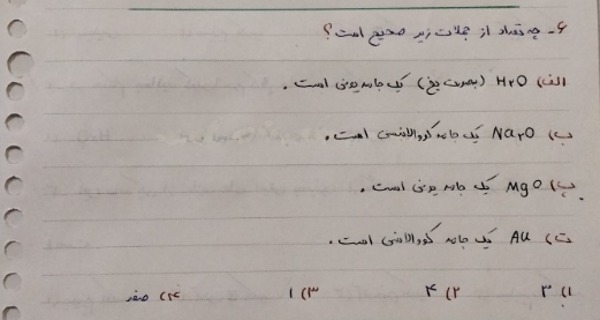 ۶- چه تعداد از جملات زیر صحیح است؟
الف) H۲O (بصورت یخ) یک جامد یونی است.
ب) Na۲O یک جامد کووالانسی است.
پ) MgO یک جامد یونی است.
ت) Au یک جامد کووالانسی است.
۱) ۳ ۲) ۴ ۳) ۱ ۴) صفر